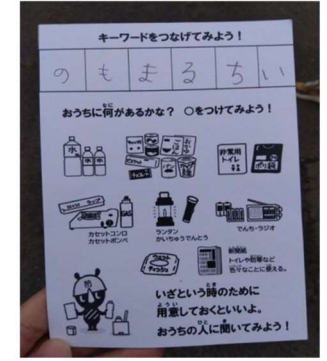 キーワードをつなげてみよう！
のもまるちい
おうちに何があるかな？ ○をつけてみよう！
水 水 水
非常用トイレ
ポリ袋
カセットコンロ
カセットボンベ
ランタン
かいちゅうでんとう
でんち・ラジオ
新聞紙
トイレや防寒など
色々なことに使える。
いざという時のために
用意しておくといいよ。
おうちの人に聞いてみよう！